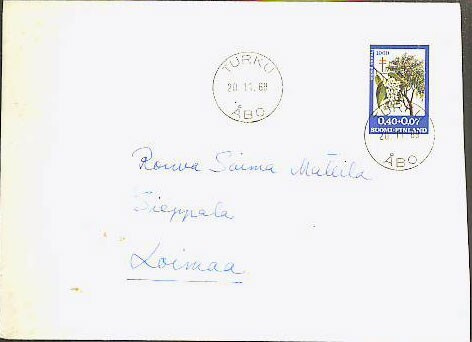 TURKU
20.11.68
ÅBO
0,40+0,07
SUOMI-FINLAND
ÅBO
Rouva Saima Mattila
Sieppala
Loimaa